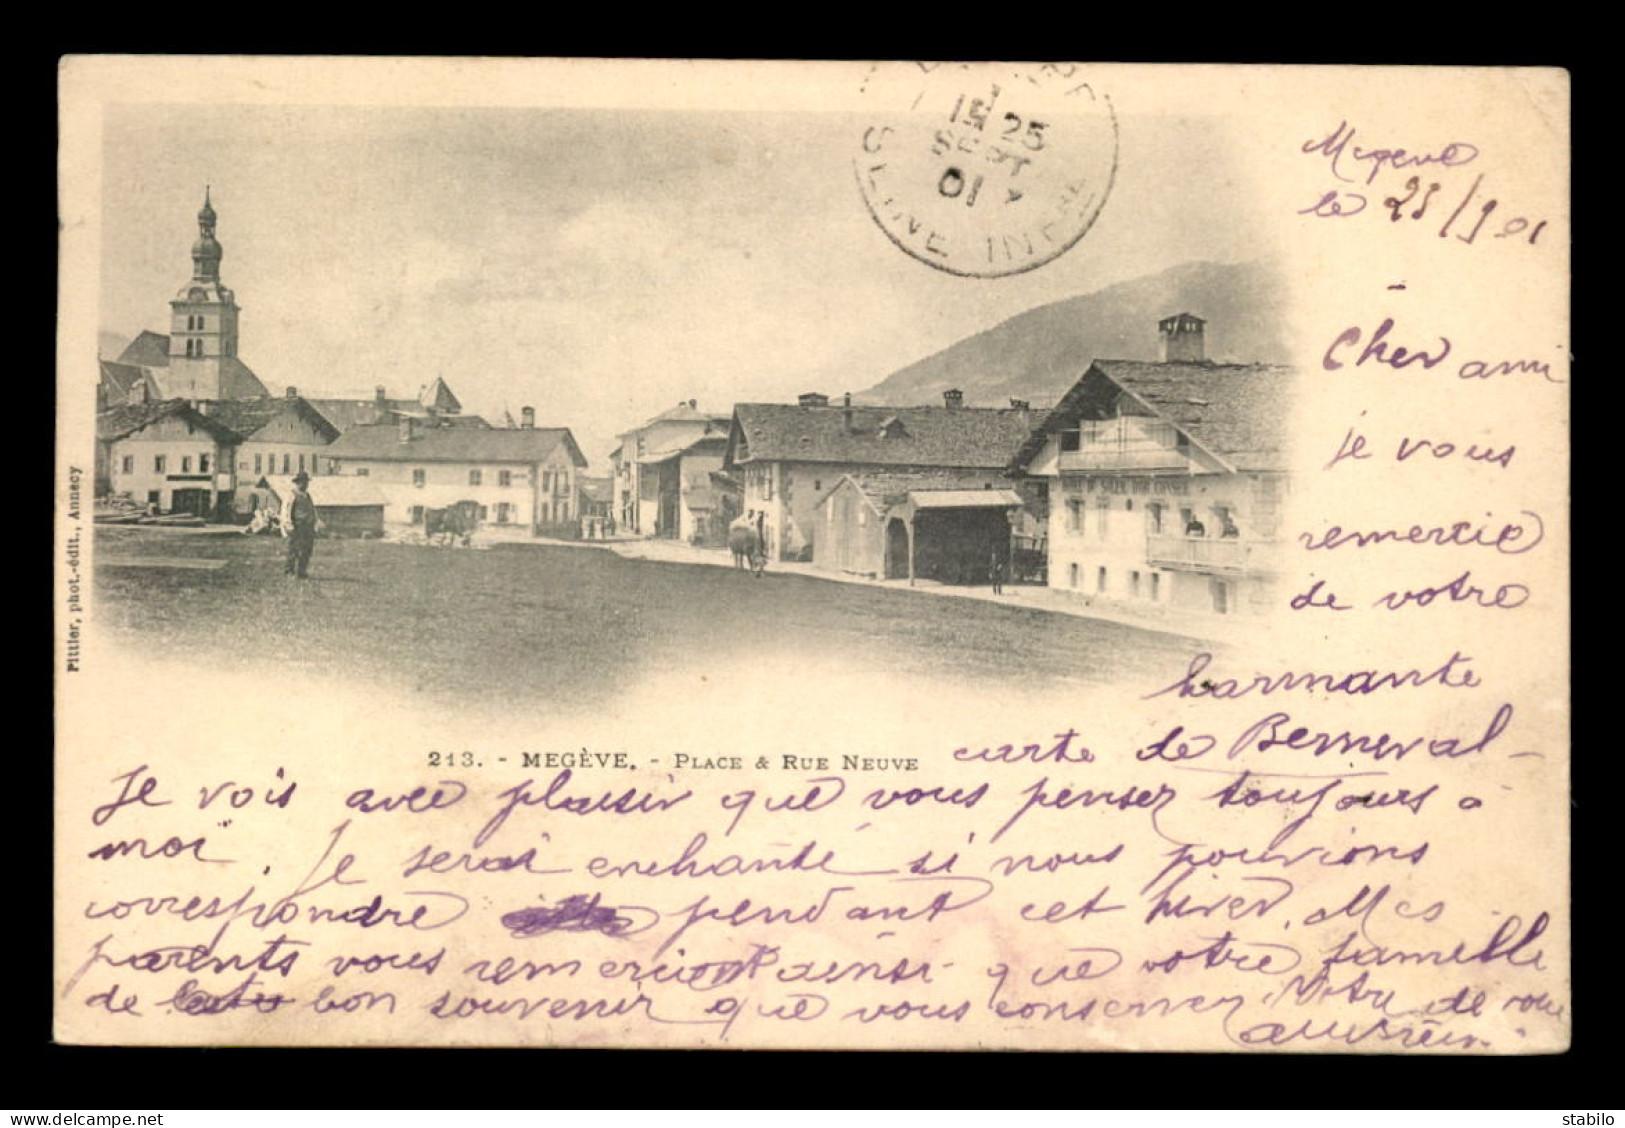 15 25
SEPT
01
SEINE INFRE
Megève
le 25/9 01
Cher ami
je vous
remercie
de votre
harmante
carte de Berneval
Je vois avec plaisir que vous pensez toujours à
moi. Je serai enchanté si nous pouvions
correspondre pendant cet hiver. Mes
parents vous remercient ainsi que votre famille
de bon souvenir que vous conservez. Votre
213. - MEGÈVE. - PLACE & RUE NEUVE
Pittier, phot.-édit., Annecy
HÔTEL DU SOLEIL D'OR CONSEIL
stabilo